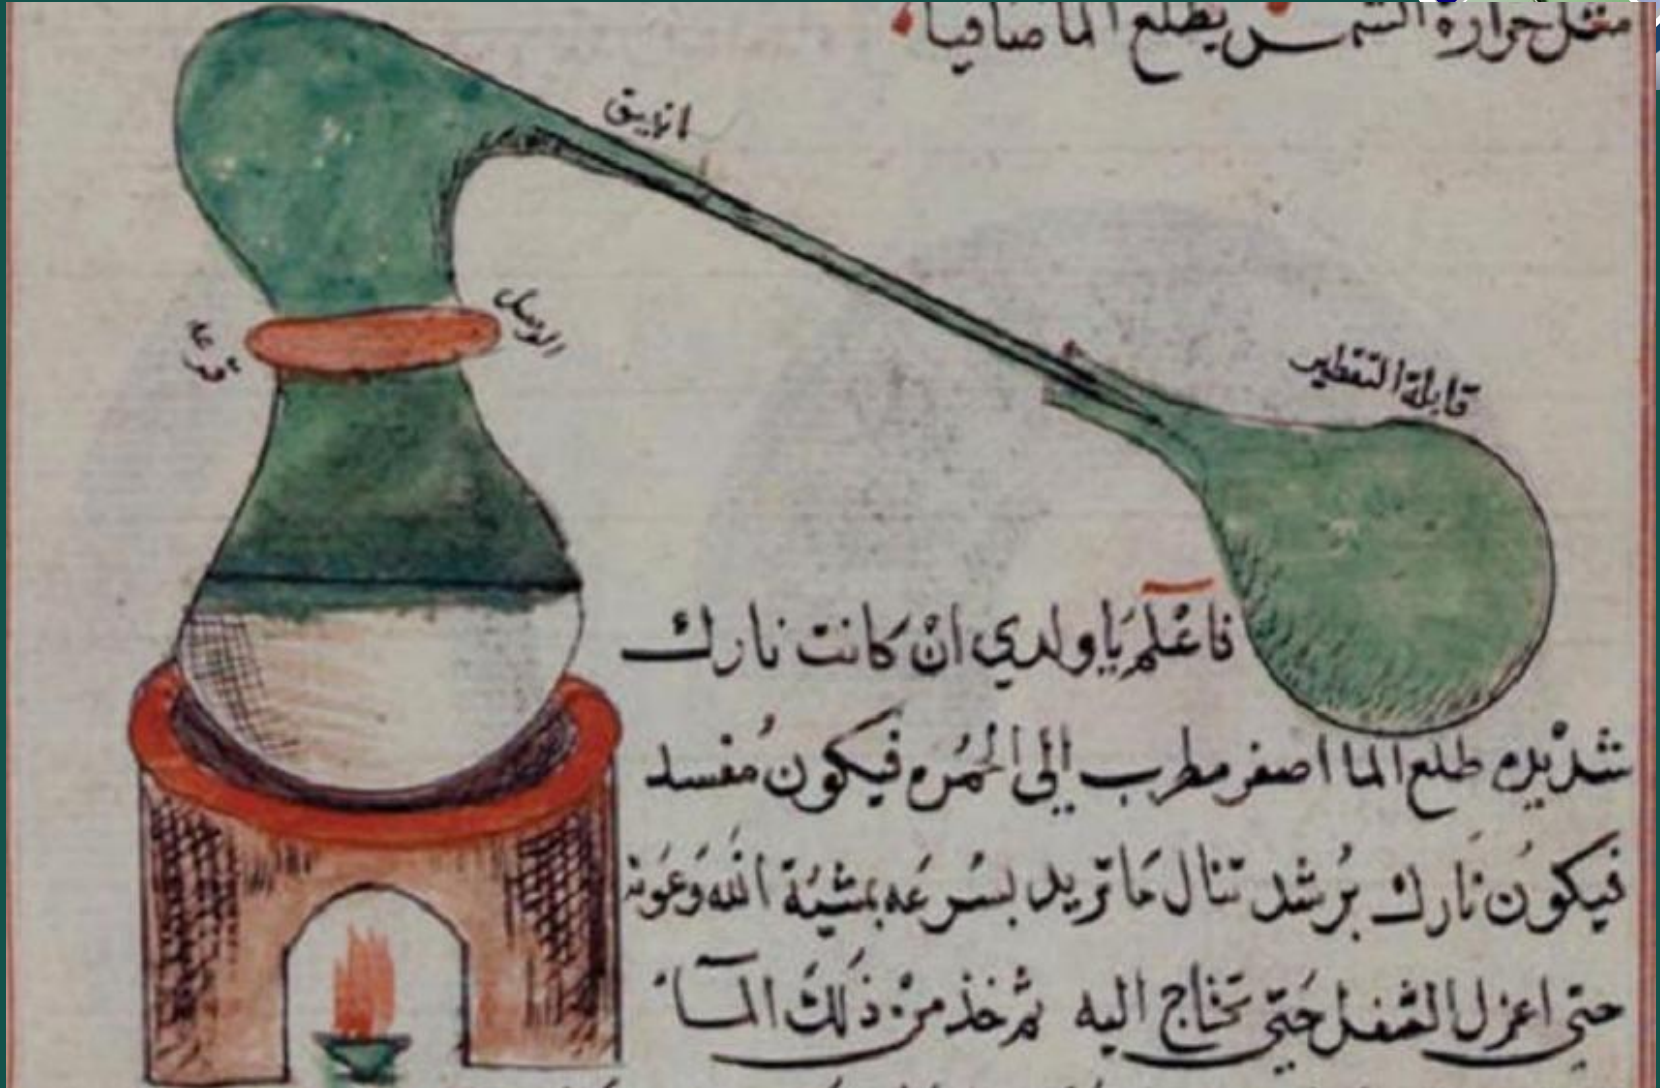 مثل حرارة الشمس يطلع الما صافيا
انبيق
الوصل
قرعه
قابلة التقطير
فاعْلم يَا ولدي انْ كانت نارك
شديده طلع الما اصفر مطرب إلى الحُمره فيكون مُفسد
فيكوُن نارك برُشد تنال مَا تريد بسُرعَه بمشيَة الله وَعَوَنه
حتى اعزل الثفل حَتى تحتاج اليه ثم خذ منْ ذَلكَ المآء